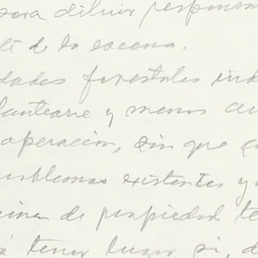 para diluir respons
de la escena.
dades forestales ind
plantearse y menos au
operación, sin que e
problemas existentes y
de propiedad te
tener lugar si, d